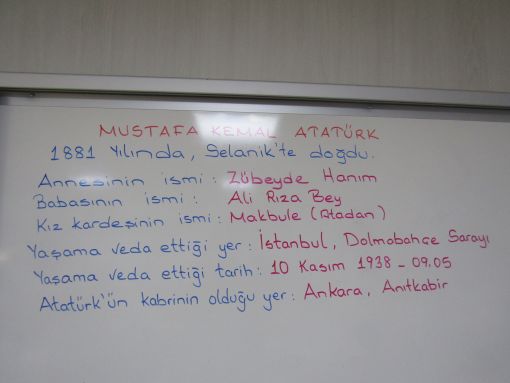 MUSTAFA KEMAL ATATÜRK
1881 Yılında, Selanik'te doğdu.
Annesinin ismi: Zübeyde Hanım
Babasının ismi: Ali Rıza Bey
Kız kardeşinin ismi: Makbule (Atadan)
Yaşama veda ettiği yer: İstanbul, Dolmabahçe Sarayı
Yaşama veda ettiği tarih: 10 Kasım 1938 - 09.05
Atatürk'ün kabrinin olduğu yer: Ankara, Anıtkabir